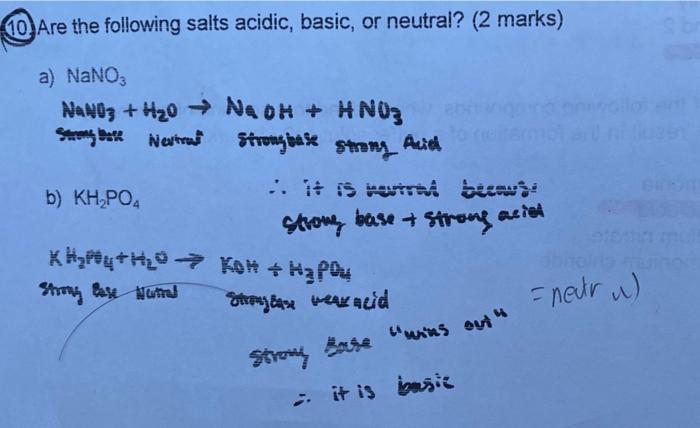 10. Are the following salts acidic, basic, or neutral? (2 marks)
a) NaNO₃
NaNO₃ + H₂O → NaOH + HNO₃
Strong base Neutral Strong base Strong Acid
∴ it is neutral because
strong base + strong acid
b) KH₂PO₄
KH₂PO₄ + H₂O → KOH + H₃PO₄
Strong Base Neutral Strong base weak acid
= neutral
Strong Base "wins out"
∴ it is basic